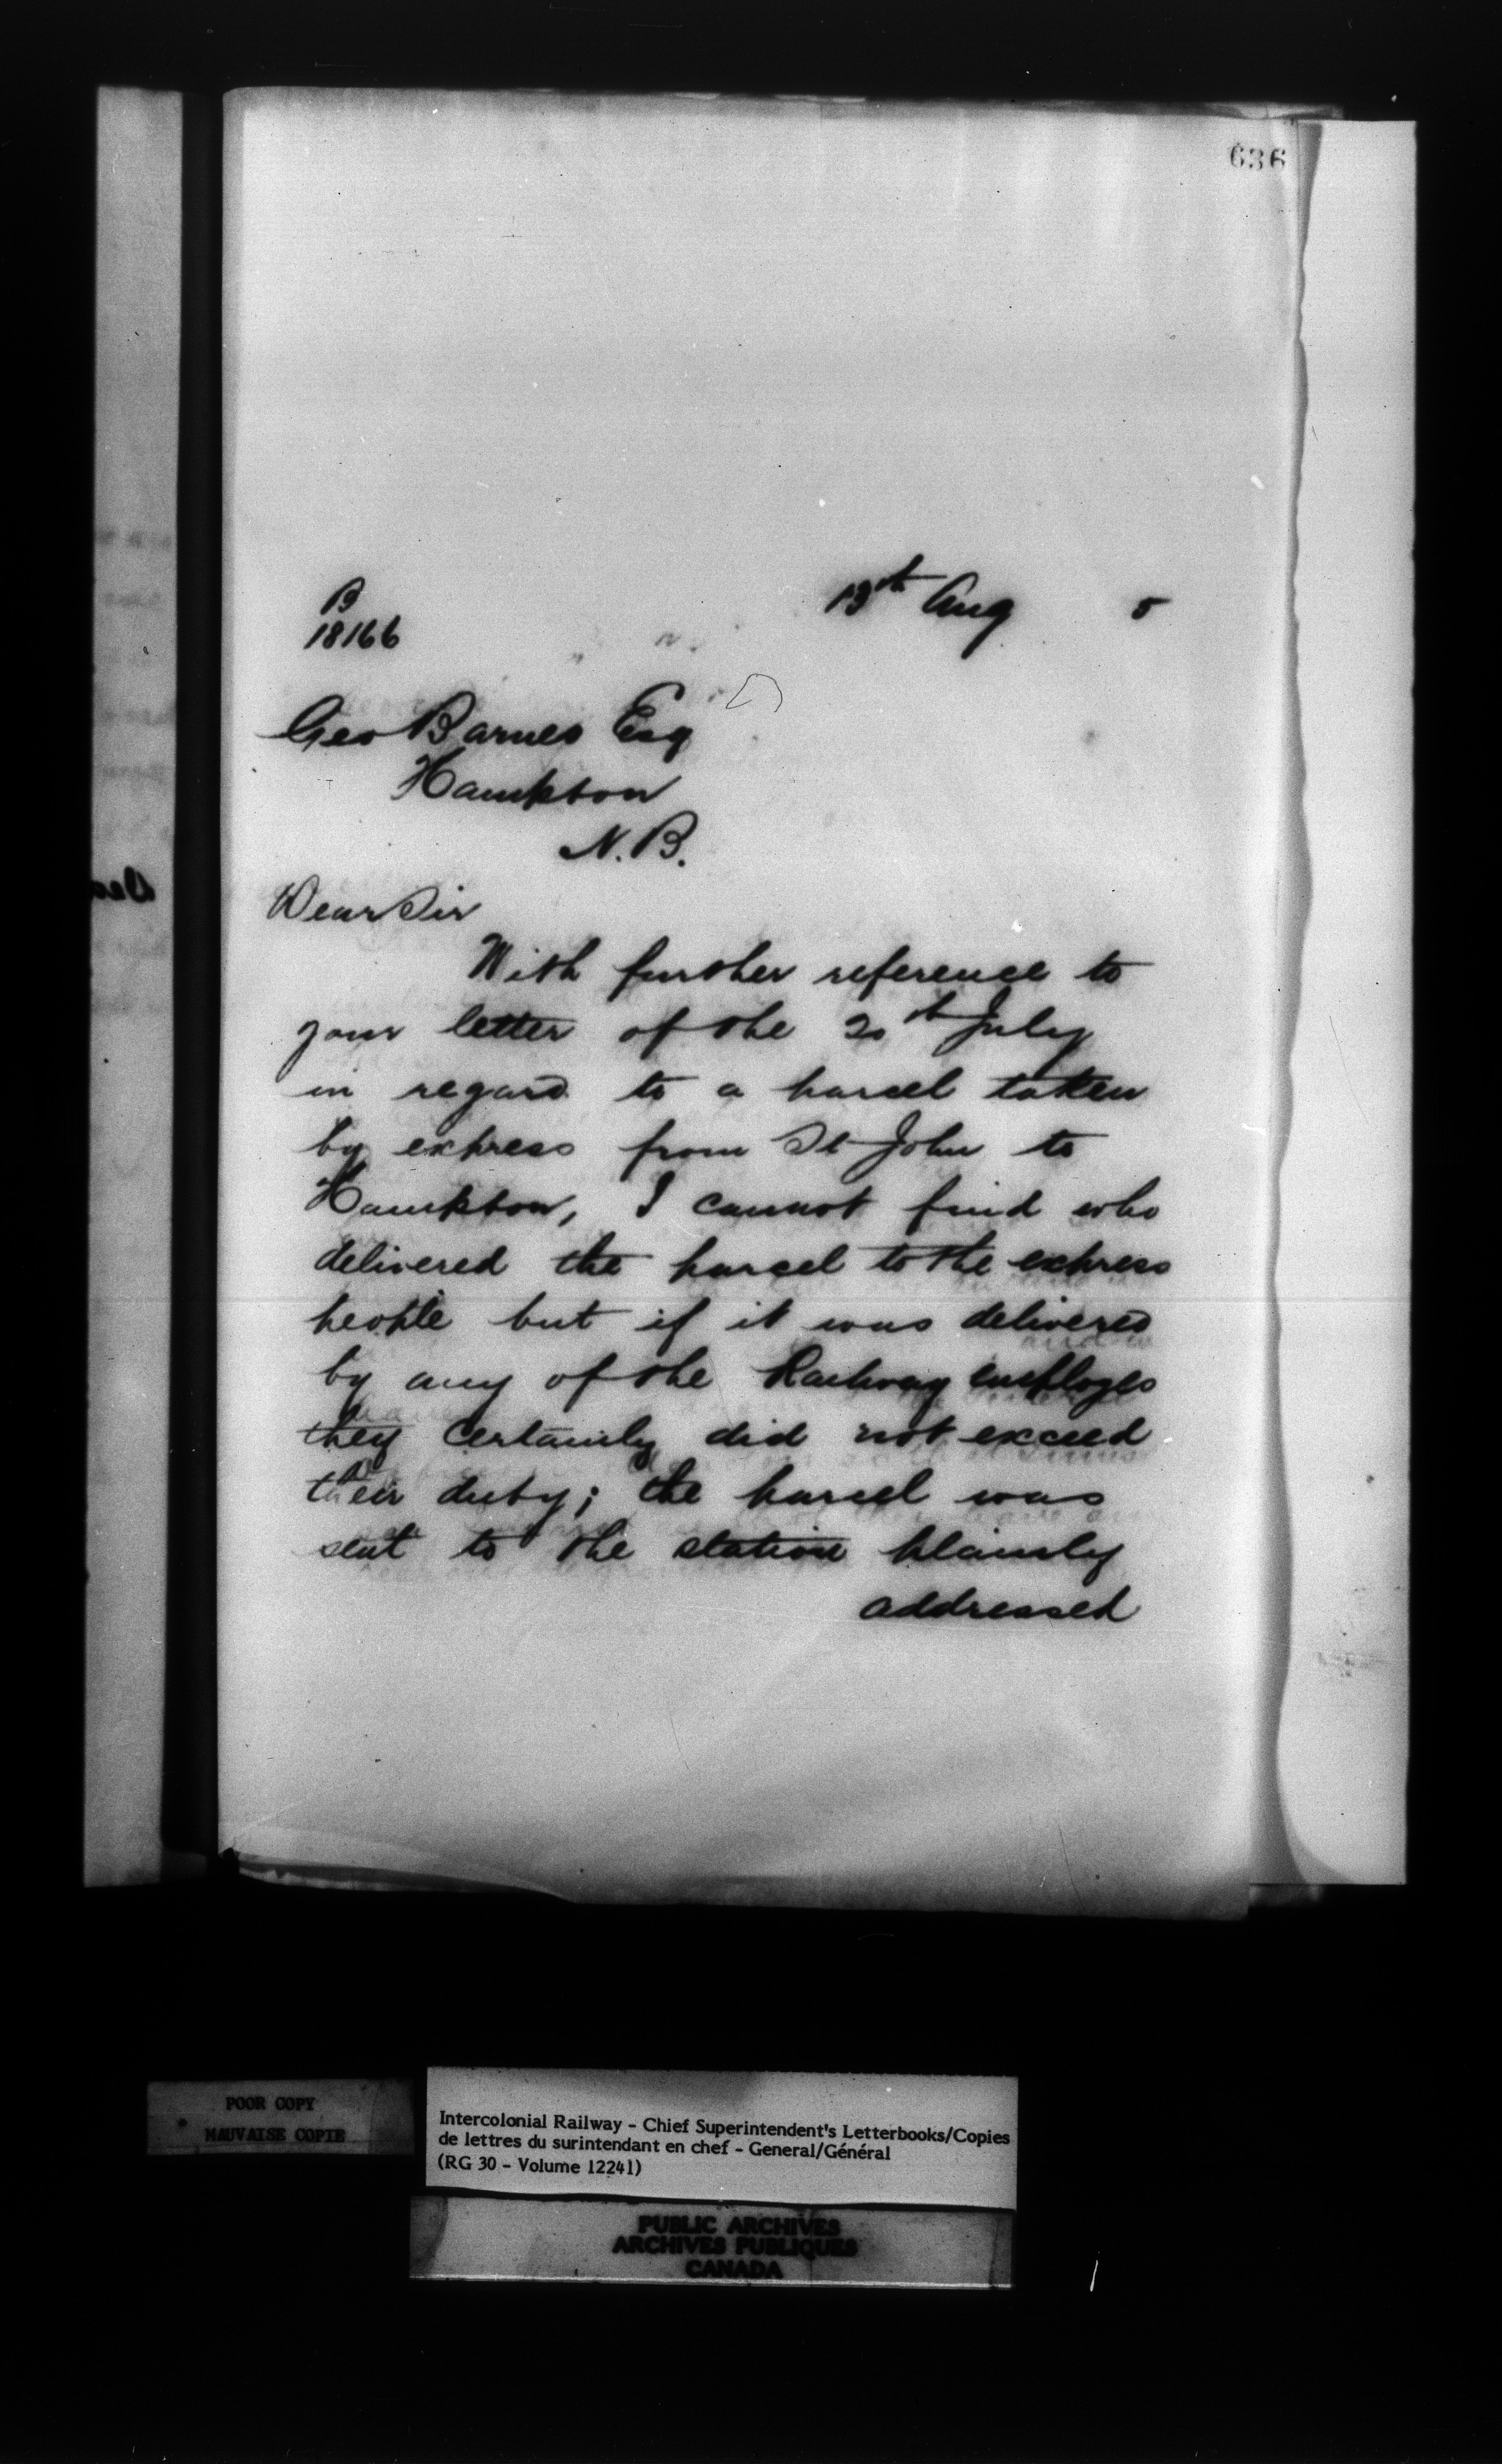 636
B
18166
13th Aug 5
Geo Barnes Esq
Hampton
N.B.
Dear Sir
With further reference to
your letter of the 20th July
in regard to a parcel taken
by express from St John to
Hampton, I cannot find who
delivered the parcel to the express
people but if it was delivered
by any of the Railway employes
they certainly did not exceed
their duty; the parcel was
sent to the station plainly
addressed
POOR COPY
MAUVAISE COPIE
Intercolonial Railway - Chief Superintendent's Letterbooks/Copies
de lettres du surintendant en chef - General/Général
(RG 30 - Volume 12241)
PUBLIC ARCHIVES
ARCHIVES PUBLIQUES
CANADA